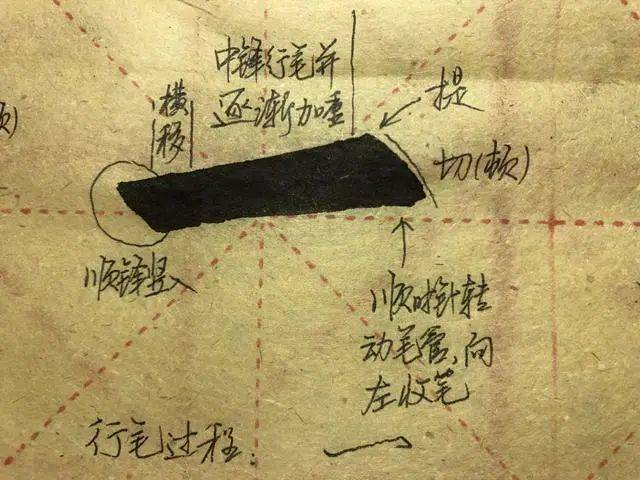 中锋行笔并
逐渐加重
横
移
提
切(顿)
顿)
顺锋竖入
顺时针转
动笔管,向
左收笔
行笔过程: